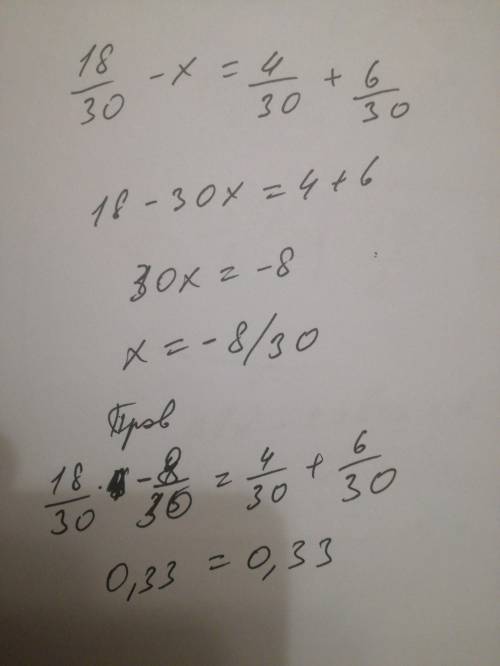 18/30 - x = 4/30 + 6/30
18 - 30x = 4 + 6
30x = -8
x = -8/30
Пров
18/30 · - 8/30 = 4/30 + 6/30
0,33 = 0,33